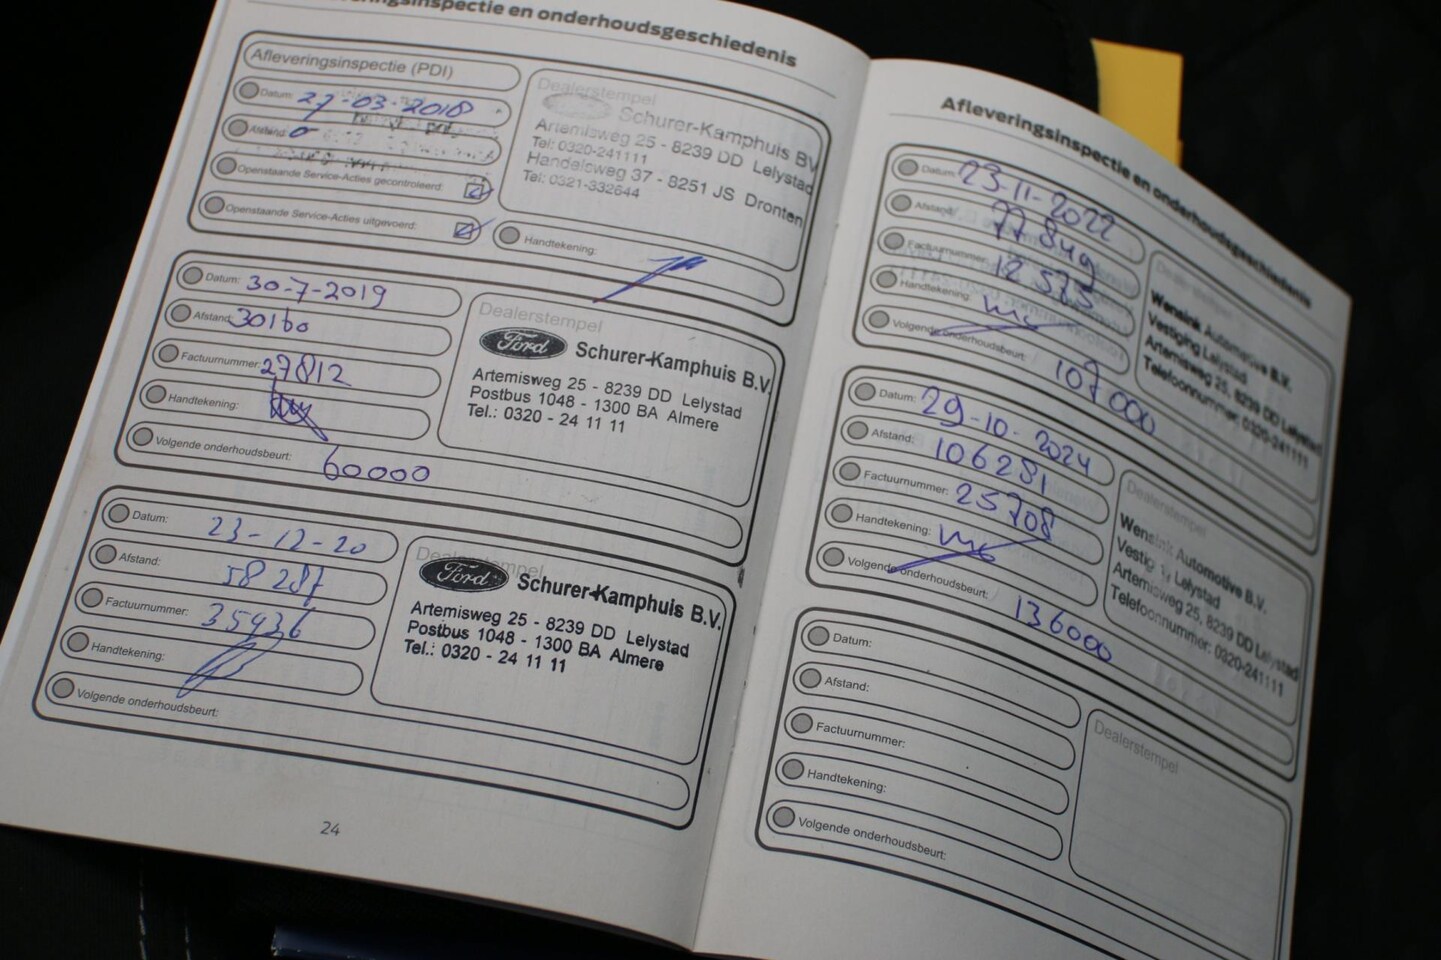 Afleveringsinspectie en onderhoudsgeschiedenis
Afleveringsinspectie (PDI)
Datum: 27-03-2018
Afstand: 0
Openstaande Service-Acties gecontroleerd:
Openstaande Service-Acties uitgevoerd:
Handtekening:
Dealerstempel
Schurer-Kamphuis BV
Artemisweg 25 - 8239 DD Lelystad
Tel: 0320-241111
Handelsweg 37 - 8251 JS Dronten
Tel: 0321-332644
Datum: 30-7-2019
Afstand: 30160
Factuurnummer: 27812
Handtekening:
Volgende onderhoudsbeurt: 60000
Dealerstempel
Ford Schurer-Kamphuis B.V.
Artemisweg 25 - 8239 DD Lelystad
Postbus 1048 - 1300 BA Almere
Tel.: 0320 - 24 11 11
Datum: 23-12-20
Afstand: 58287
Factuurnummer: 35936
Handtekening:
Volgende onderhoudsbeurt:
Dealerstempel
Ford Schurer-Kamphuis B.V.
Artemisweg 25 - 8239 DD Lelystad
Postbus 1048 - 1300 BA Almere
Tel.: 0320 - 24 11 11
24
Afleveringsinspectie en onderhoudsgeschiedenis
Datum: 23-11-2022
Afstand: 77849
Factuurnummer: 12575
Handtekening:
Volgende onderhoudsbeurt: 107000
Wensink Automotive B.V.
Vestiging Lelystad
Artemisweg 25, 8239 DD Lelystad
Telefoonnummer: 0320-241111
Datum: 29-10-2024
Afstand: 106281
Factuurnummer: 25708
Handtekening:
Volgende onderhoudsbeurt: 136000
Dealerstempel
Wensink Automotive B.V.
Lelystad
Artemisweg 25, 8239 DD Lelystad
Telefoonnummer: 0320-241111
Datum:
Afstand:
Factuurnummer:
Handtekening:
Volgende onderhoudsbeurt:
Dealerstempel